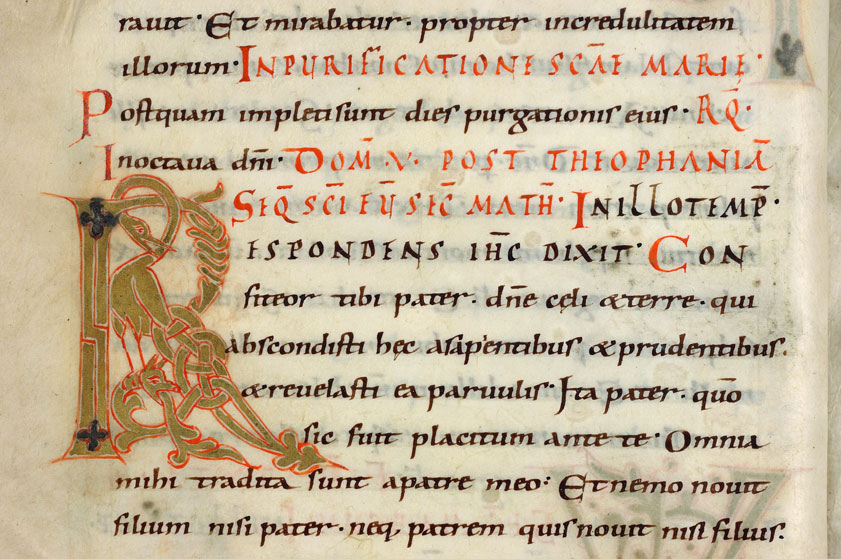 rauit · Et mirabatur · propter incredulitatem
illorum · IN PURIFICATIONE SCAE MARIE ·
Postquam impleti sunt dies purgationis eius · RQ̄ ·
In octaua dm̄ · DOM̄ · V · POST THEOPHANIĀ
SEQ̄ SCĪ EŪ SEC̄ MATH̄ · IN ILLO TEMP̄ ·
RESPONDENS IHC̄ DIXIT · CON
fiteor tibi pater · dn̄e cęli & terre · qui
abscondisti hęc a sapientibus & prudentibus ·
& reuelasti ea paruulis · Ita pater · quō
sic fuit placitum ante te · Omnia
mihi tradita sunt a patre meo · Et nemo nouit
filium nisi pater · neq; patrem quis nouit nisi filius ·